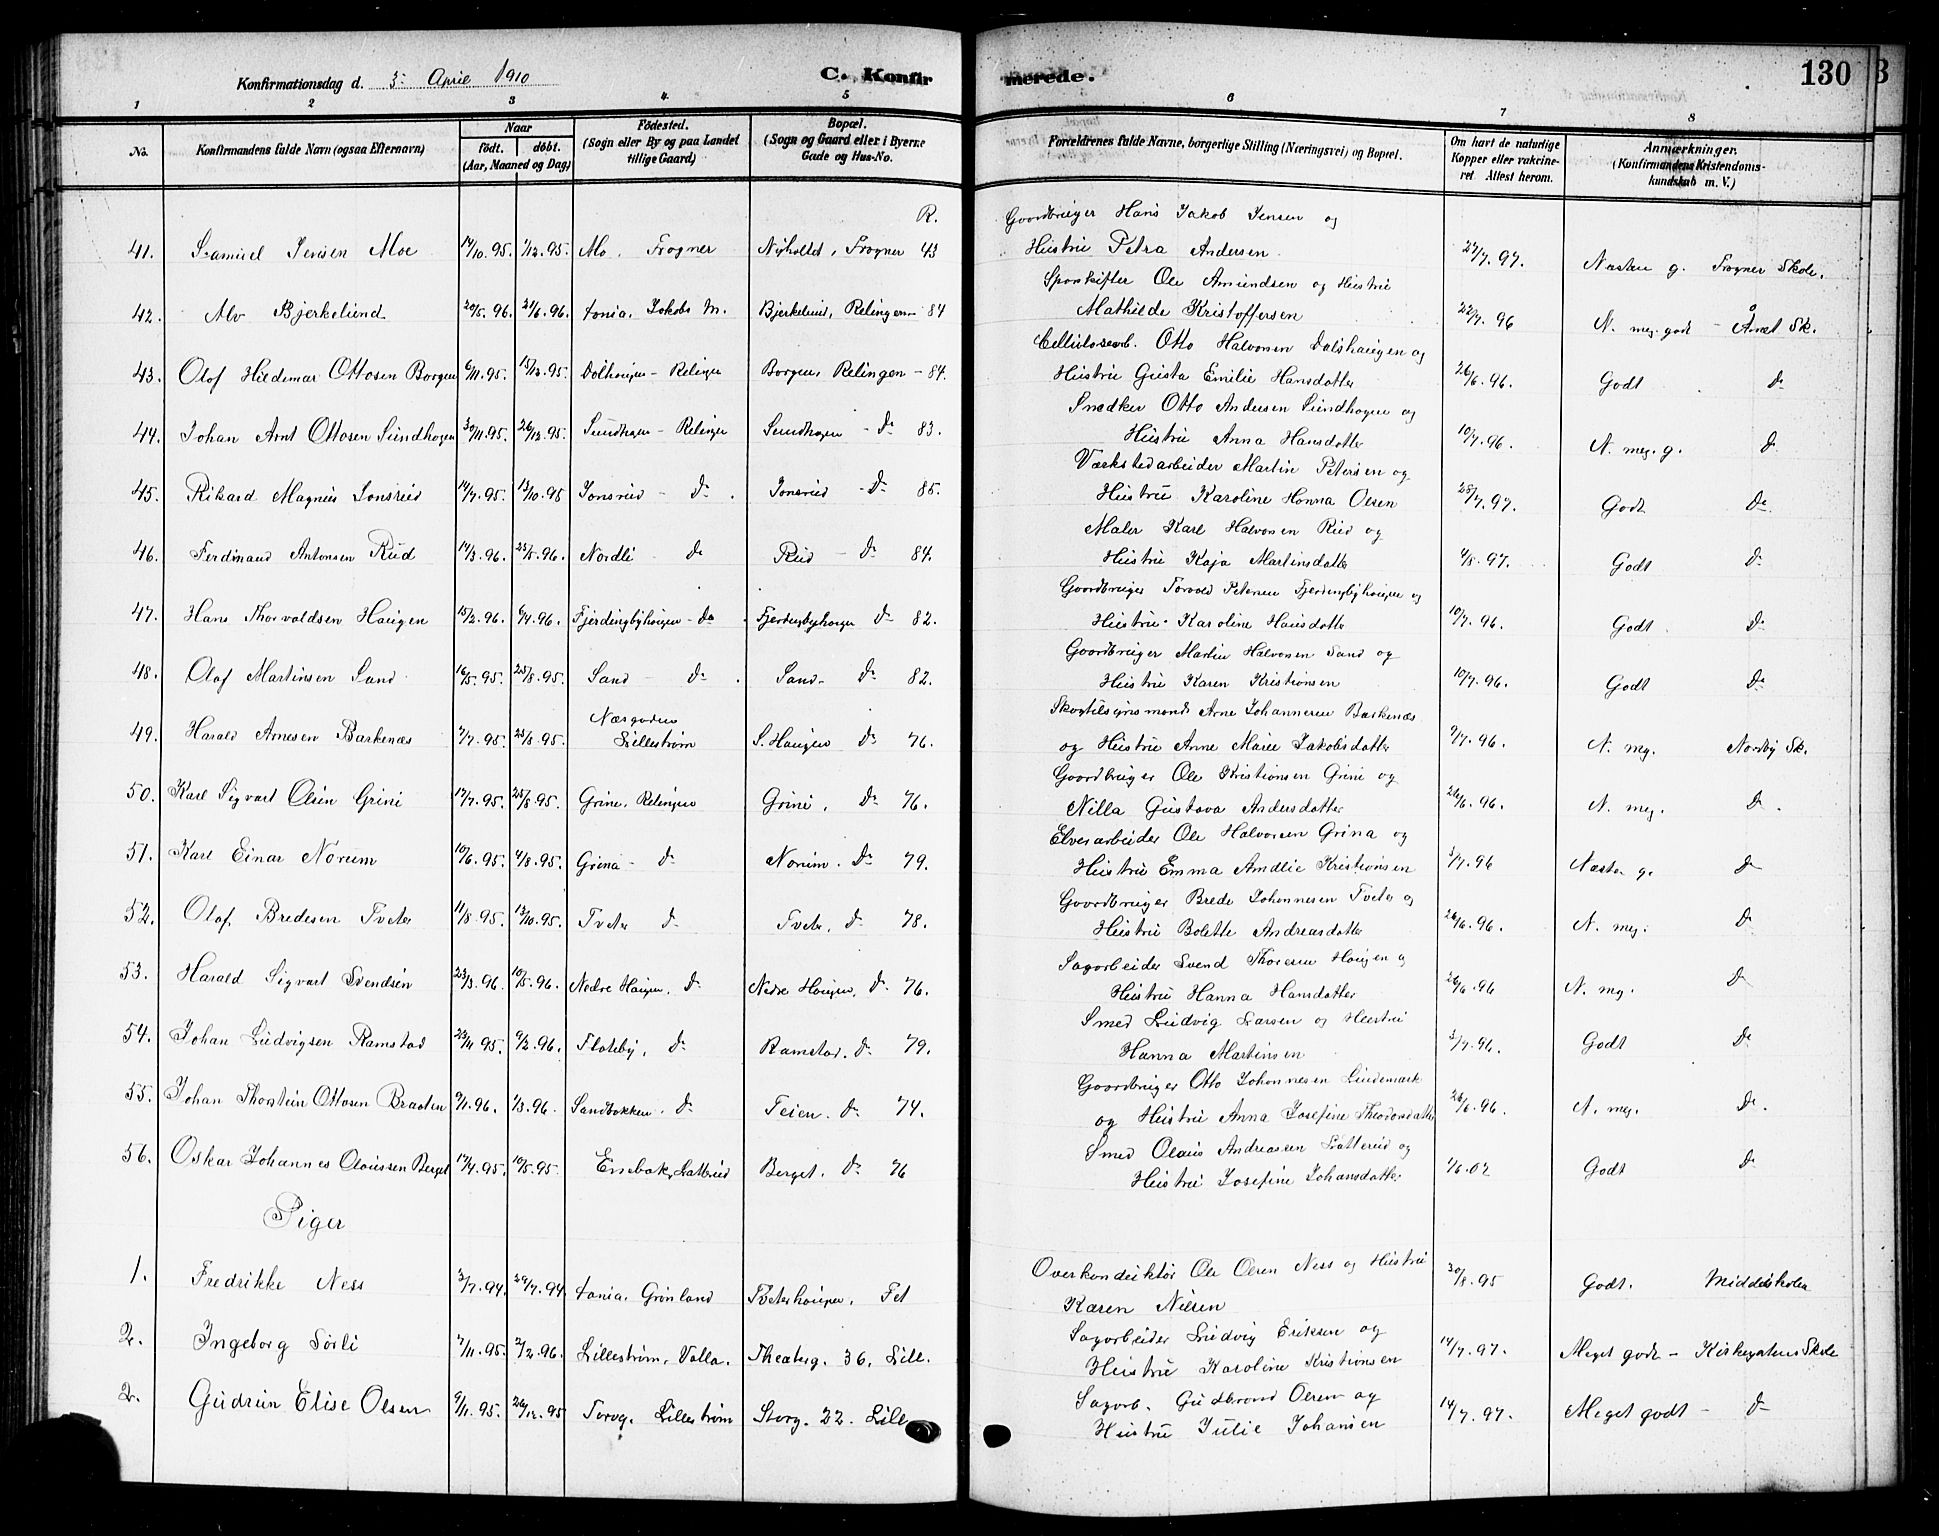 Konfirmationsdag d. 3. April 1910 C. Konfirmerede. 130
1 2 3 4 5 6 7 8
No. Konfirmandens fulde Navn (ogsaa Efternavn) Naar Födt. döbt. (Aar, Maaned og Dag) Födested. (Sogn eller By og paa Landet tillige Gaard) Bopæl. (Sogn og Gaard eller i Byerne Gade og Hus-No. Forældrenes fulde Navne, borgerlige Stilling (Næringsvei) og Bopæl. Om havt de naturlige Kopper eller vakcineret Attest herom. Anmærkninger. (Konfirmandens Kristendomskundskab m. V.)
R. Gaardbruger Hans Jakob Jensen og
41. Samuel Jensen Moe 14/10.95. 1/12.95. Mo, Frogner Nyholdt, Frogner 43 Hustru Petra Andersen. 27/7.97. Næsten g. Frogner Skole.
Sporskifter Ole Amundsen og Hustru
42. Alv Bjerkelund 20/5.96. 21/6.96. Jakobs M. Bjerkelund, Relingen 84 Mathilde Kristoffersen 22/7.96 N. meg. godt - Åmot Sk.
Cellulosearb. Otto Halvorsen Dalshaugen og
43. Olaf Hildemar Ottosen Borgen 6/11.95. 15/12.95. Dolhaugen - Relingen Borgen, Relingen - 84. Hustru Gusta Emilie Hansdatter 26/6.96. Godt Do
Snedker Otto Andersen Sundhagen og
44. Johan Arnt Ottosen Sundhagen 30/11.95. 26/12.95. Sundhagen - Relingen Sundhagen - Do 83. Hustru Anna Hansdatter 10/7.96. N. meg. g. Do
Værkstedarbeider Martin Petersen og
45. Rikard Magnus Jonsrud 14/7.95. 13/10.95 Jonsrud - Do. Jonsrud - Do 85. Hustru Karoline Hanna Olsen 28/7.97. Godt Do
Maler Karl Halvorsen Rud og
46. Ferdinand Antonsen Rud 14/3.96. 25/5.96. Nordli - Do Rud - Do 84. Hustru Kaja Martinsdatter 4/8.97. Godt Do
Gaardbruger Torvald Petersen Fjerdingbyhaugen og
47. Hans Thorvaldsen Haugen 15/2.96. 6/4.96. Fjerdingbyhaugen - Do Fjerdingbyhaugen Do 82. Hustru Karoline Hansdatter 10/7.96. Godt Do
Gaardbruger Martin Halvorsen Sand og
48. Olaf Martinsen Sand 16/5.95. 25/8.95. Sand - Do. Sand - Do 82. Hustru Karen Kristiansen 10/7.96. Godt Do
Næsgaden Skogtilsynsmand Arne Johannesen Barkenæs
49. Harald Arnesen Barkenæs 7/7.95. 25/8.95. Lillestrøm S. Haugen Do 76. og Hustru Anne Marie Jakobsdatter 9/7.96. N. meg. Nordby Sk.
Gaardbruger Ole Kristiansen Grini og
50. Karl Sigvart Olsen Grini 17/7.95. 25/8.95. Grine, Relingen Grini, Do 76. Nilla Gustava Andersdatter 26/6.96. N. meg. Do.
Elvearbeider Ole Halvorsen Grina og
51. Karl Einar Norum 10/6.95. 4/8.95. Grina - Do Norum. Do 79. Hustru Emma Amdlie Kristiansen 3/7.96 Næsten g. Do
Gaardbruger Brede Johannesen Tveter og
52. Olaf Bredesen Tveter 11/8.95. 13/10.95. Tveter Do Tveter, Do 78. Hustru Bolette Andreasdatter 26/6.96. N. meg. Do
Sagarbeider Svend Thoresen Haugen og
53. Harald Sigvart Svendsen 23/3.96. 10/5.96. Nedre Haugen, Do Nedre Haugen, Do 76. Hustru Hanna Hansdatter 26/6.96 N. meg. Do
Smed Ludvig Larsen og Hustru
54. Johan Ludvigsen Ramstad 22/11.95. 9/2.96. Flateby, Do Ramstad. Do 79. Hanna Martinsen 3/7.96. Godt Do
Gaardbruger Otto Johannesen Lindemark
55. Johan Thorstein Ottosen Braaten 9/1.96. 1/3.96. Sandbakken. Do Teien. Do 74. og Hustru Anna Josefine Theodorsdatter 26/6.96. N. meg. Do.
Smed Olaus Andreasen Slatterud og
56. Oskar Johannes Olaussen Berget 17/4.95. 10/5.95. Enebak, Slattrud Berget. Do 76 Hustru Josefine Johansdatter 1/6.02 Godt Do
Piger
1. Fredrikke Ness 3/7.94. 29/7.94. Grønland Tveterhaugen, Fet Overkonduktør Ole Olsen Ness og Hustru 30/8.95 Godt. Middelskolen
Karen Nilsen
2. Ingeborg Sörli 7/11.95. 2/2.96. Lillestrøm, Volla. Theaterg. 36, Lill. Sagarbeider Ludvig Eriksen og 14/7.97. Meget godt - Kirkegatens Skole
Hustru Karoline Kristiansen
2. Gudrun Elise Olsen 9/11.95. 26/12.95 Torvg. Lillestrøm Storg. 22. Lill. Sagarb. Gudbrand Olsen og 14/7.97. Meget godt - Do
Hustru Julie Johansen